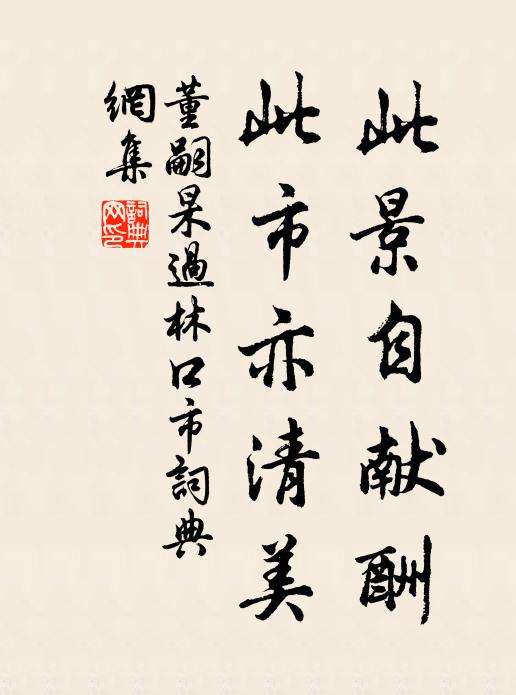 此景自献酬
此市亦清美
董嗣杲過林口市詞典
網集
詞典
网印